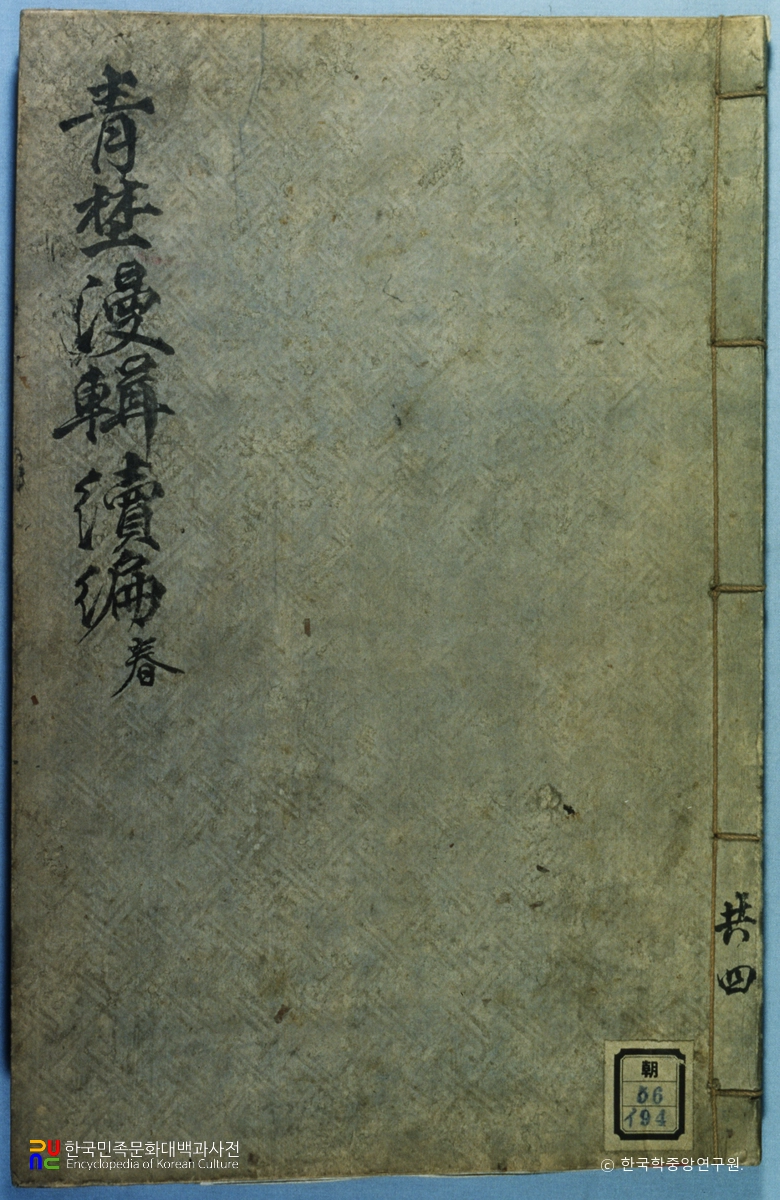 青埜漫輯續編 春
共四
朝
56
イ94
한국민족문화대백과사전
Encyclopedia of Korean Culture
© 한국학중앙연구원